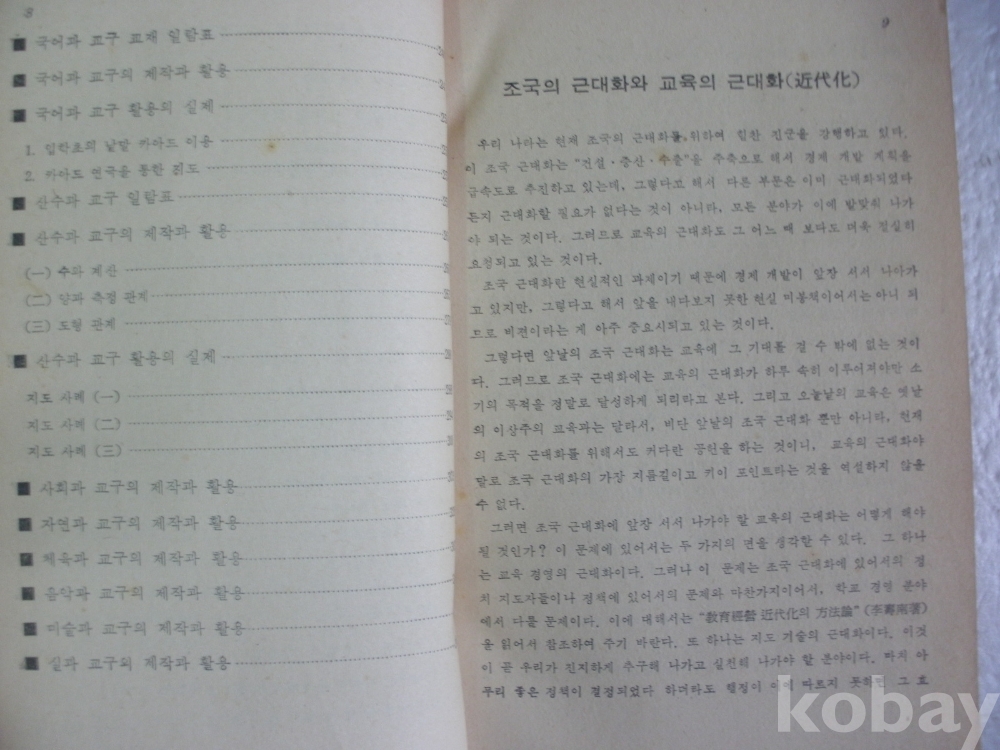 8
■ 국어과 교구 교재 일람표
■ 국어과 교구의 제작과 활용
■ 국어과 교구 활용의 실제
1. 입학초의 낱말 카아드 이용
2. 카아드 연극을 통한 지도
■ 산수과 교구 일람표
■ 산수과 교구의 제작과 활용
(一) 수와 계산
(二) 양과 측정 관계
(三) 도형 관계
■ 산수과 교구 활용의 실제
지도 사례 (一)
지도 사례 (二)
지도 사례 (三)
■ 사회과 교구의 제작과 활용
■ 자연과 교구의 제작과 활용
■ 체육과 교구의 제작과 활용
■ 음악과 교구의 제작과 활용
■ 미술과 교구의 제작과 활용
■ 실과 교구의 제작과 활용
9
조국의 근대화와 교육의 근대화(近代化)
우리 나라는 현재 조국의 근대화를 위하여 힘찬 진군을 강행하고 있다.
이 조국 근대화는 “건설·증산·수출”을 주축으로 해서 경제 개발 계획을
급속도로 추진하고 있는데, 그렇다고 해서 다른 부문은 이미 근대화되었다
든지 근대화할 필요가 없다는 것이 아니라, 모든 분야가 이에 발맞춰 나가
야 되는 것이다. 그러므로 교육의 근대화도 그 어느 때 보다도 더욱 절실히
요청되고 있는 것이다.
조국 근대화만 현실적인 과제이기 때문에 경제 개발이 앞장 서서 나아가
고 있지만, 그렇다고 해서 앞을 내다보지 못한 현실 미봉책이어서는 아니 되
므로 비젼이라는 게 아주 중요시되고 있는 것이다.
그렇다면 앞날의 조국 근대화는 교육에 그 기대를 걸 수 밖에 없는 것이
다. 그러므로 조국 근대화에는 교육의 근대화가 하루 속히 이루어져야만 소
기의 목적을 정말로 달성하게 되리라고 본다. 그리고 오늘날의 교육은 옛날
의 이상주의 교육과는 달라서, 비단 앞날의 조국 근대화 뿐만 아니라, 현재
의 조국 근대화를 위해서도 커다란 공헌을 하는 것이니, 교육의 근대화야
말로 조국 근대화의 가장 지름길이고 키이 포인트라는 것을 역설하지 않을
수 없다.
그러면 조국 근대화에 앞장 서서 나가야 할 교육의 근대화는 어떻게 해야
될 것인가? 이 문제에 있어서는 두 가지의 면을 생각할 수 있다. 그 하나
는 교육 경영의 근대화이다. 그러나 이 문제는 조국 근대화에 있어서의 정
치 지도자들이나 정책에 있어서의 문제와 마찬가지이어서, 학교 경영 분야
에서 다룰 문제이다. 이에 대해서는 “敎育經營 近代化의 方法論” (李壽南著)
을 읽어서 참조하여 주기 바란다. 또 하나는 지도 기술의 근대화이다. 이것
이 곧 우리가 진지하게 추구해 나가고 실천해 나가야 할 분야이다. 마치 아
무리 좋은 정책이 결정되었다 하더라도 행정이 이에 따르지 못하면 그 효
kobay